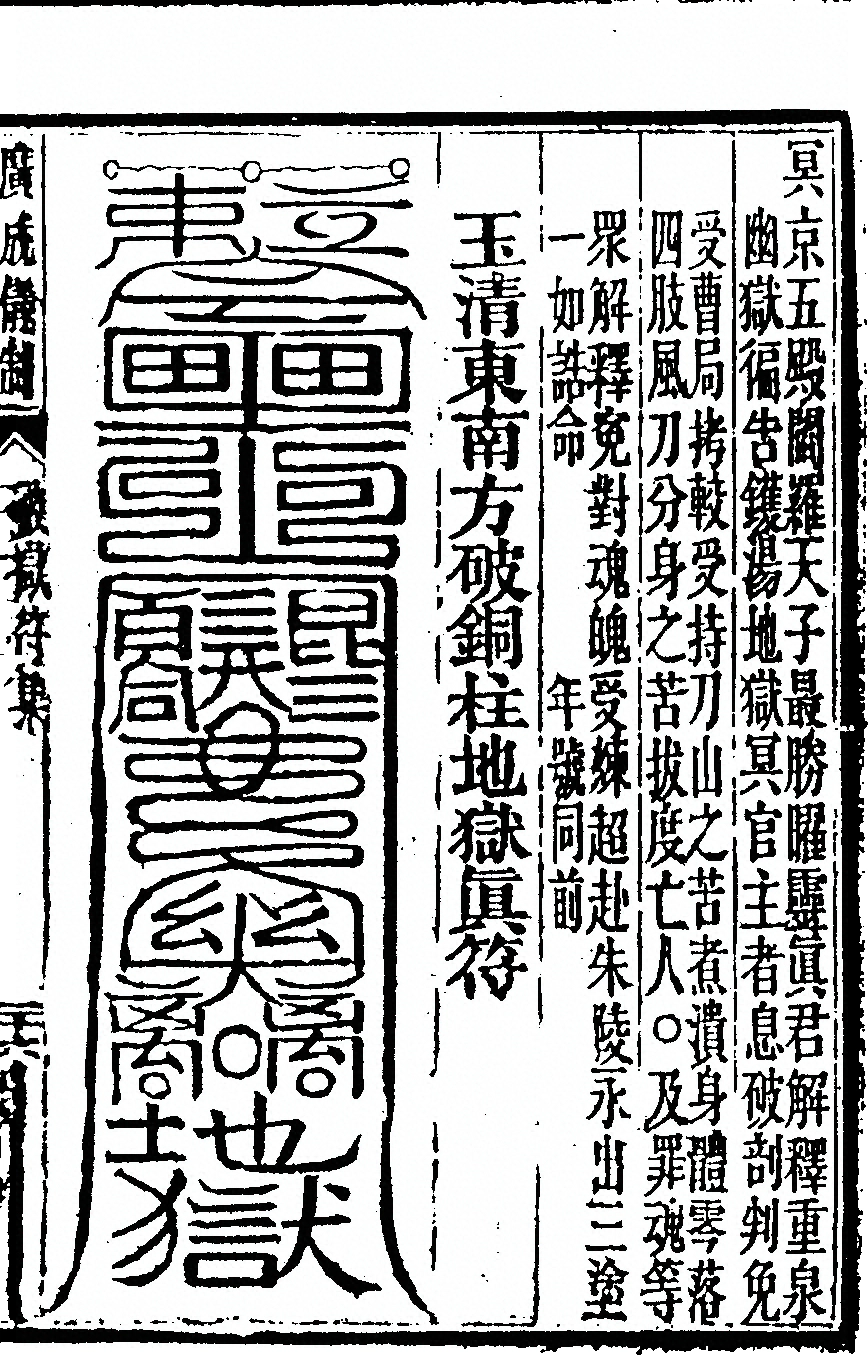 冥京五殿閻羅天子最勝曜靈眞君解釋重泉
幽獄徧告鑊湯地獄冥官主者息破剖判免
受曹局拷較受持刀山之苦煮潰身體零落
四肢風刀分身之苦拔度亡人○及罪魂等
眾解釋寃對魂魄受練超赴朱陵永出三塗
一如誥命 年號同前
玉清東南方破銅柱地獄眞符
地獄
廣成儀制 破獄符集